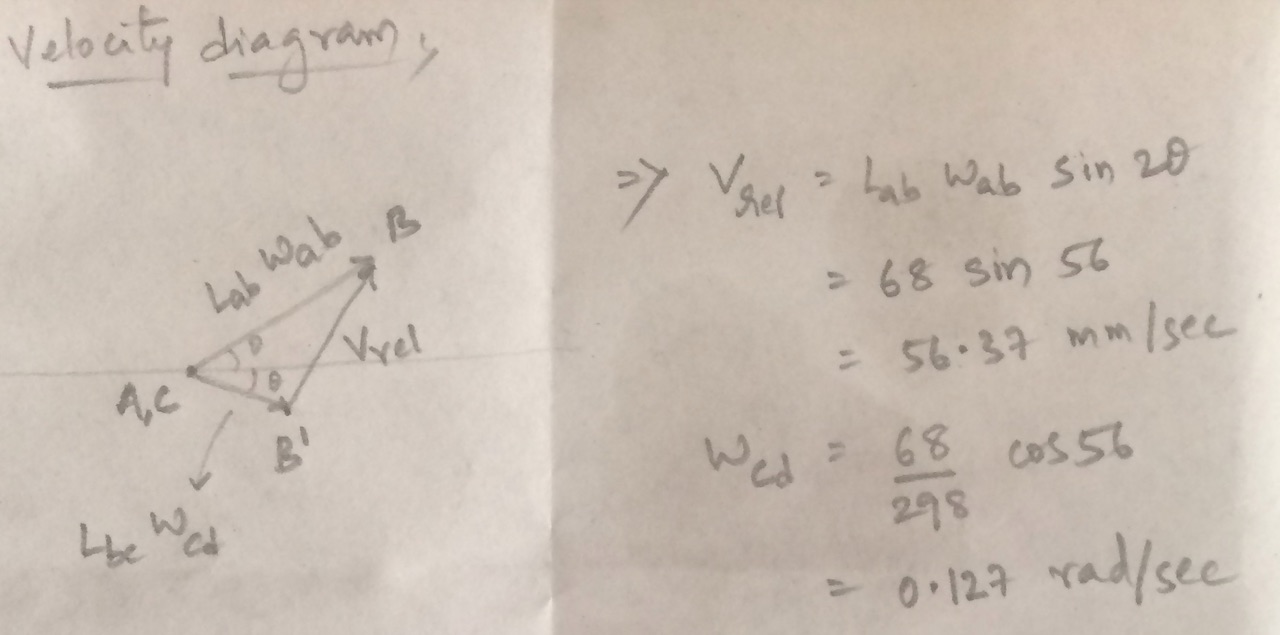 Velocity diagram,
Lab Wab
B
θ
θ
Vrel
A,C
B'
Lbc Wcd
=> Vrel = Lab Wab sin 2θ
= 68 sin 56
= 56.37 mm/sec
Wcd = 68/298 cos 56
= 0.127 rad/sec